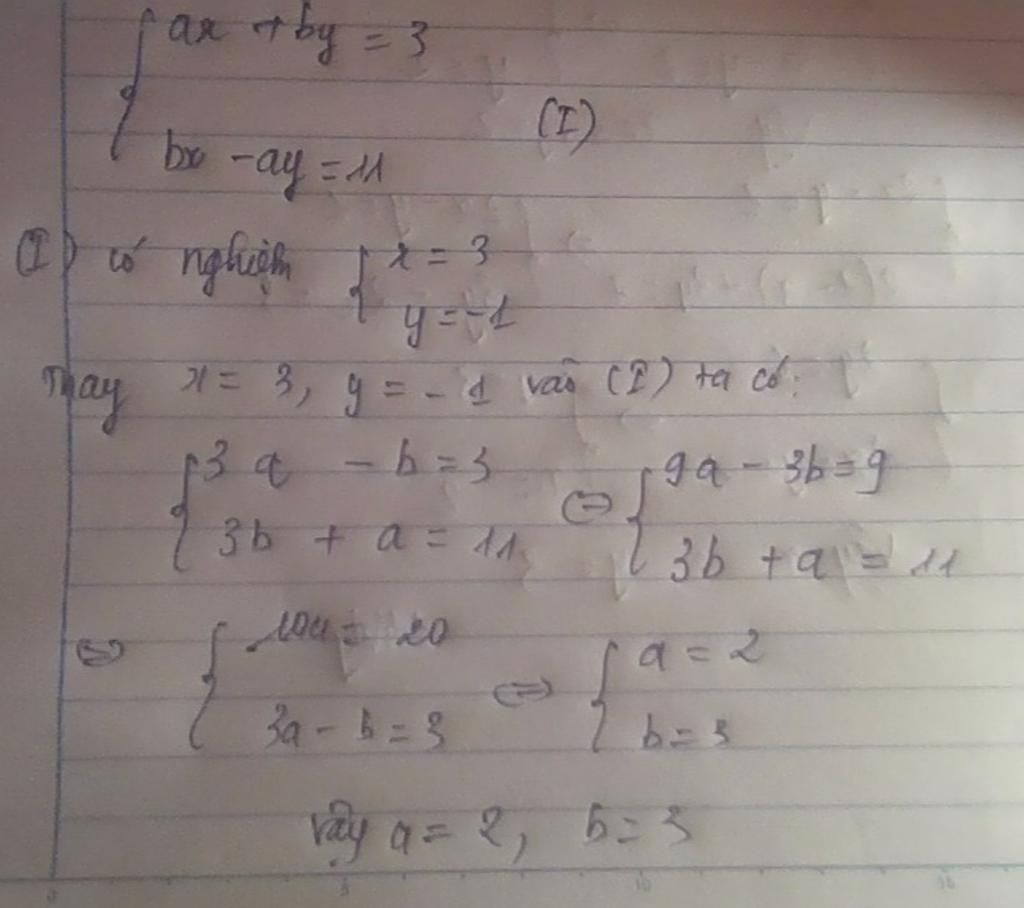 ax + by = 3
(I)
bx - ay = 11
(I) có nghiệm { x = 3
y = -1
Thay x = 3, y = -1 vào (I) ta có:
{ 3a - b = 3 ⇔ { 9a - 3b = 9
3b + a = 11 3b + a = 11
⇔ { 10a = 20 ⇔ { a = 2
3a - b = 3 b = 3
Vậy a = 2, b = 3